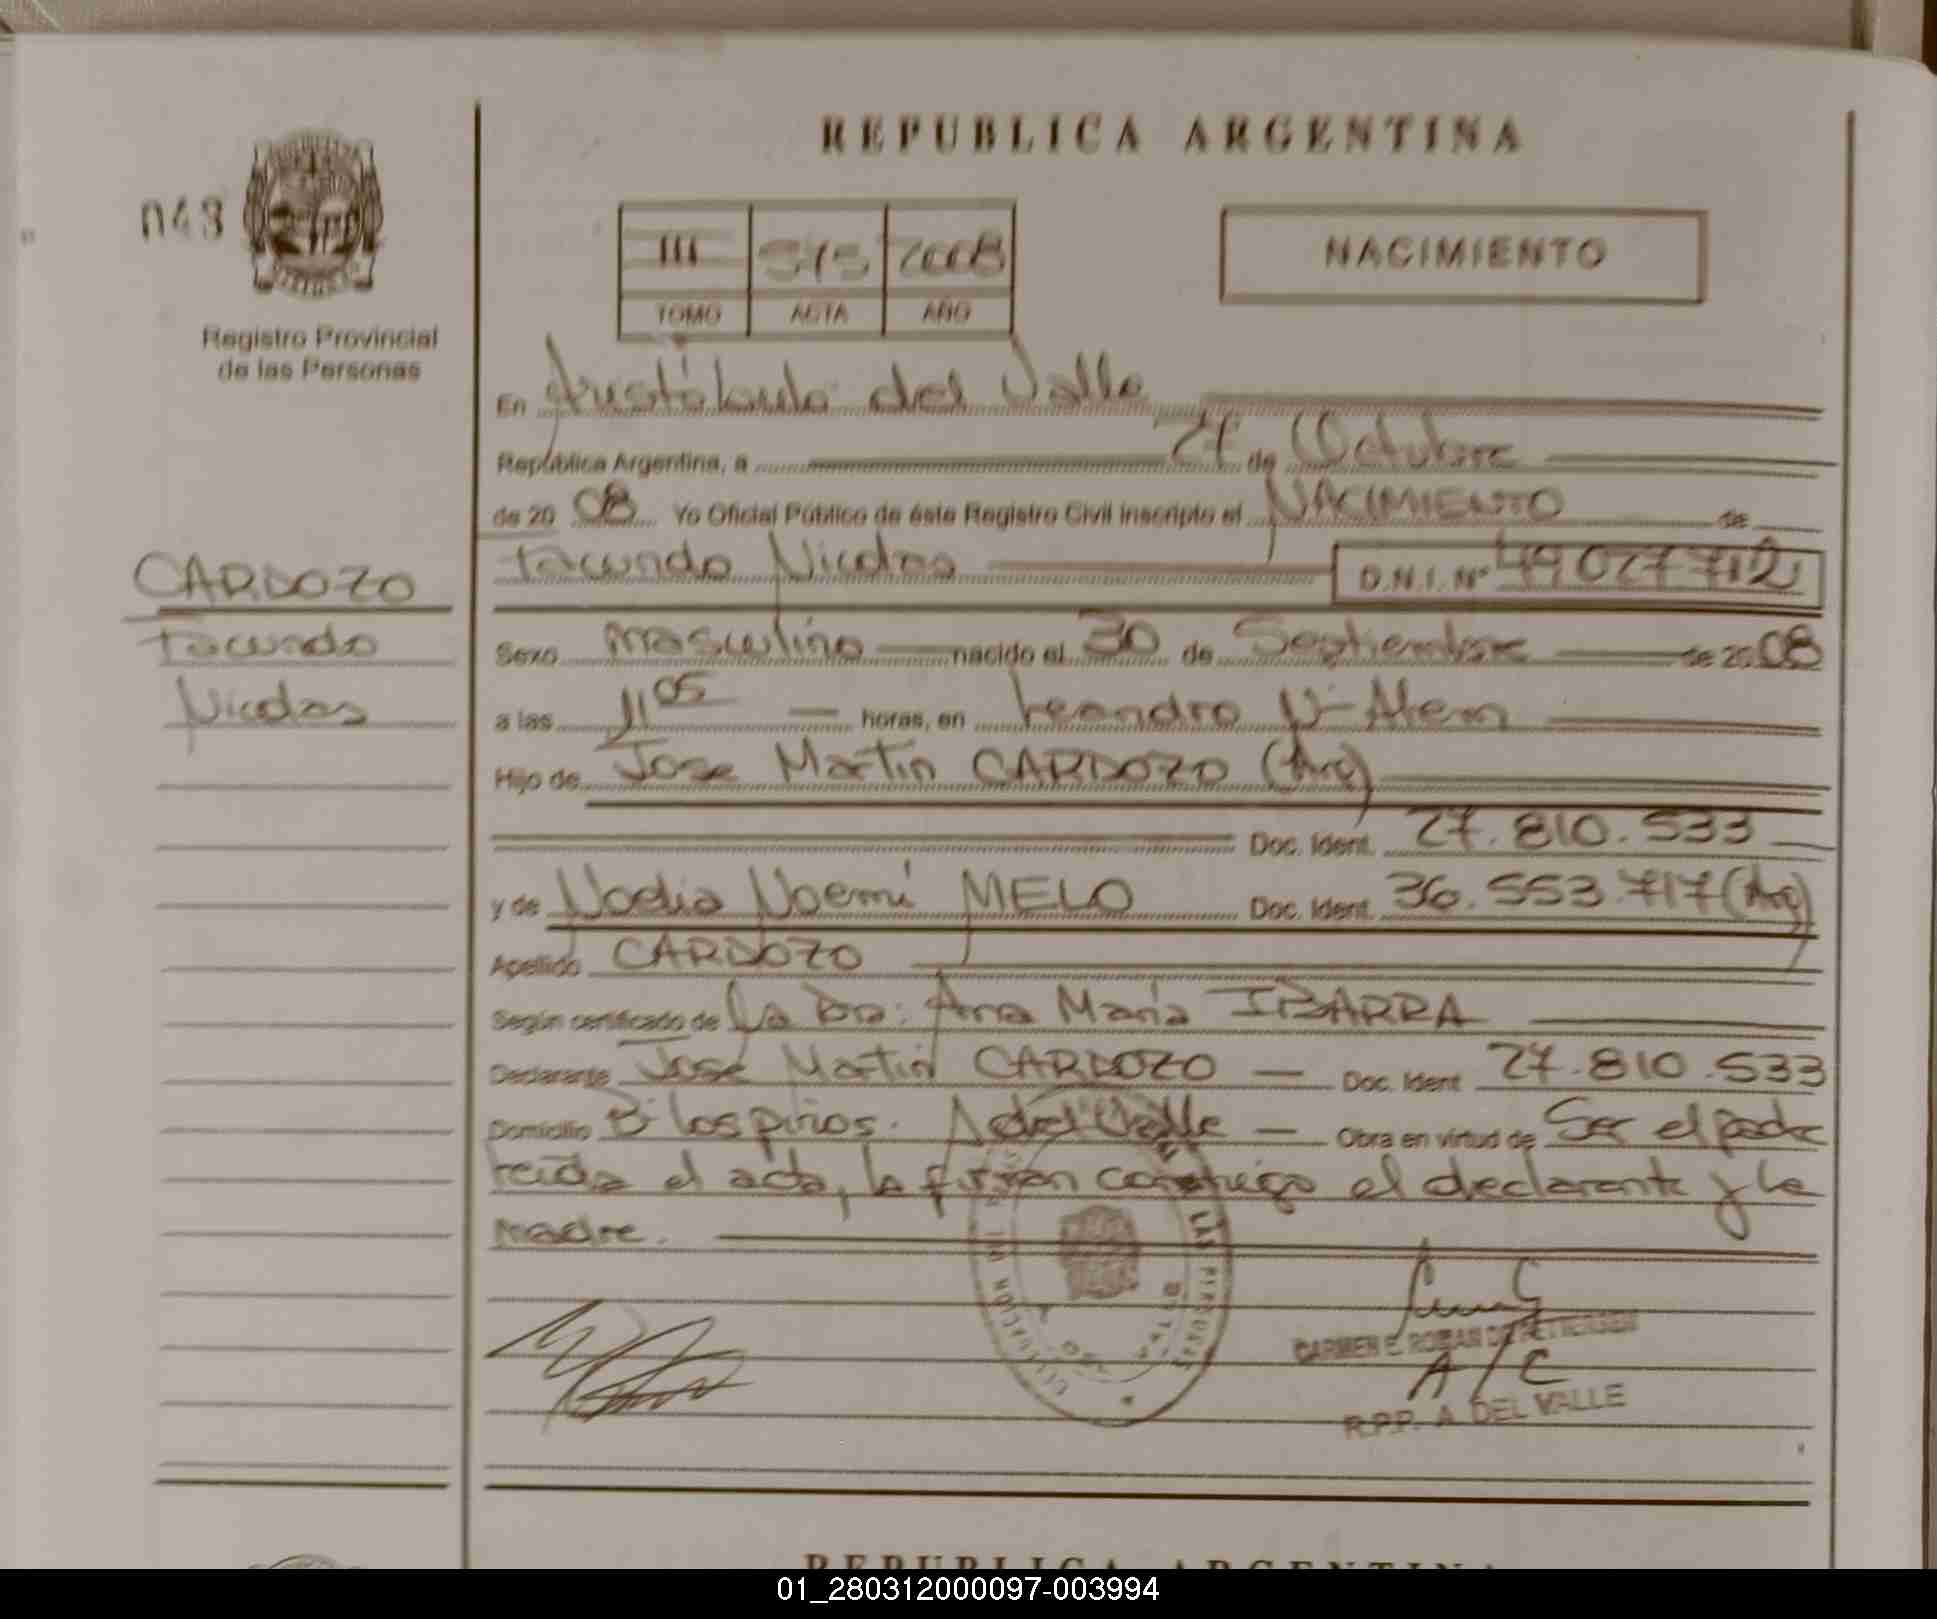 REPUBLICA ARGENTINA
048
III 515 2008
TOMO ACTA AÑO
NACIMIENTO
Registro Provincial
de las Personas
En Aristóbulo del Valle
República Argentina, a 27 de Octubre
de 20 08 Yo Oficial Público de éste Registro Civil inscripto el NACIMIENTO de
Facundo Nicolas D.N.I. Nº 49027712
CARDOZO
Facundo
Nicolas
Sexo masculino nacido el 30 de Septiembre de 20 08
a las 11 05 horas, en Leandro N. Alem
Hijo de Jose Martin CARDOZO (Arg)
Doc. Ident. 27.810.533
y de Nadia Noemí MELO Doc. Ident. 36.553.717 (Arg)
Apellido CARDOZO
Según certificado de la Dra: Ana María IBARRA
Declarante José Martin CARDOZO Doc. Ident 27.810.533
Domicilio Bº los pinos. A del Valle Obra en virtud de Ser el padre
leída el acta, la firman conmigo el declarante y la
madre.
CARMEN E. ROMAN DE PETTERSEN
A/C
R.P.P. A. DEL VALLE
REPUBLICA ARGENTINA
01_280312000097-003994